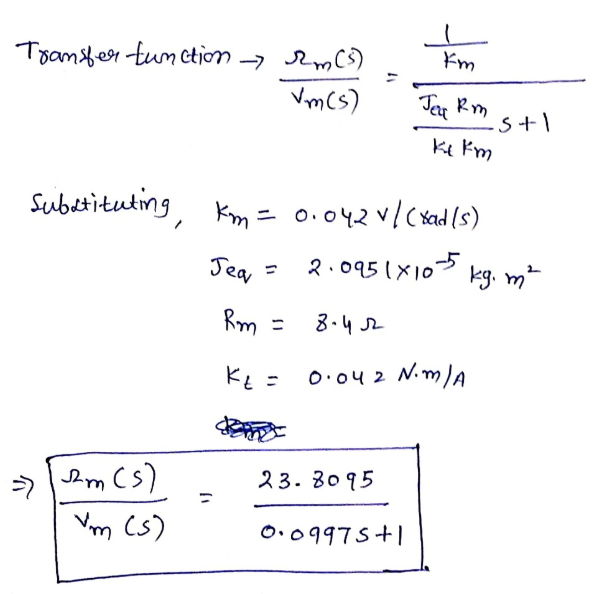 Transfer function → Ωm(s) / Vm(s) = (1 / Km) / ((Jeq Rm / Kt Km) s + 1)
Substituting, Km = 0.042 V/(rad/s)
Jeq = 2.0951×10^-5 kg.m²
Rm = 8.4 Ω
Kt = 0.042 N.m/A
⇒ Ωm(s) / Vm(s) = 23.8095 / (0.0997s+1)